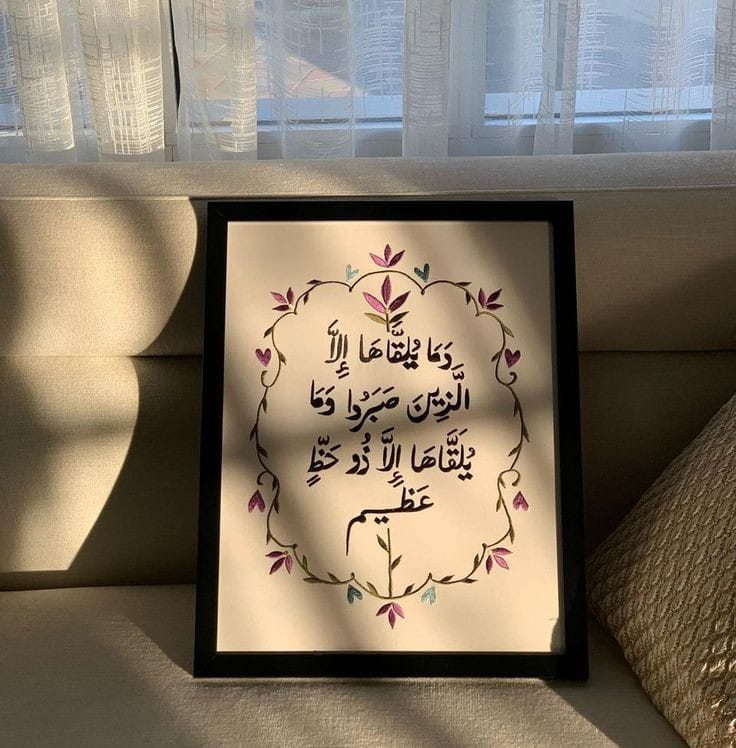 وَمَا يُلَقَّاهَا إِلَّا
الَّذِينَ صَبَرُوا وَمَا
يُلَقَّاهَا إِلَّا ذُو حَظٍّ
عَظِيم